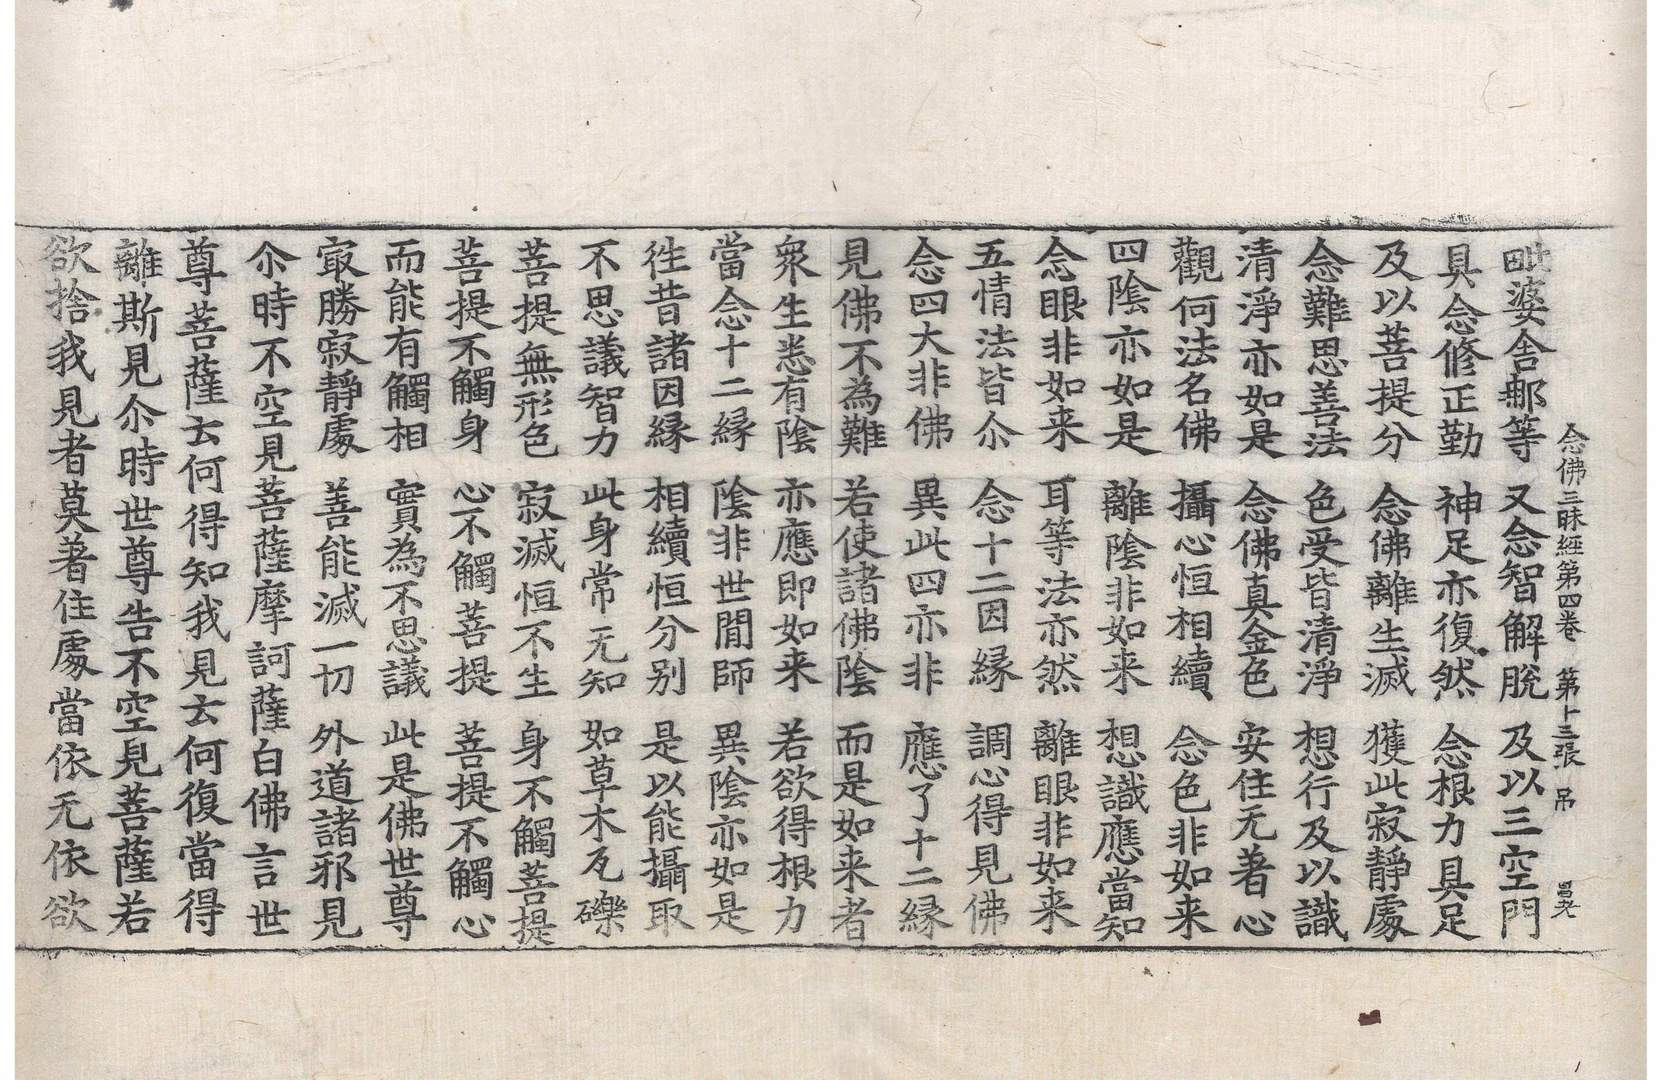 念佛三昧經第四卷　第十三張　吊
毗婆舍𨚗等　又念智解脫　及以三空門
具念修正勤　神足亦復然　念根力具足
及以菩提分　念佛離生滅　獲此寂靜處
念難思善法　色受皆清淨　想行及以識
清淨亦如是　念佛真金色　安住无著心
觀何法名佛　攝心恒相續　念色非如来
四陰亦如是　離陰非如来　想識應當知
念眼非如来　耳等法亦然　離眼非如来
五情法皆尒　念十二因緣　調心得見佛
念四大非佛　異此四亦非　應了十二緣
見佛不為難　若使諸佛陰　而是如来者
衆生悉有陰　亦應即如来　若欲得根力
當念十二緣　陰非世間師　異陰亦如是
徃昔諸因緣　相續恒分別　是以能攝取
不思議智力　此身常无知　如草木瓦礫
菩提無形色　寂滅恒不生　身不觸菩提
菩提不觸身　心不觸菩提　菩提不觸心
而能有觸相　實為不思議　此是佛世尊
㝡勝寂靜處　善能滅一切　外道諸邪見
尒時不空見菩薩摩訶薩白佛言世
尊菩薩云何得知我見云何復當得
離斯見尒時世尊告不空見菩薩若
欲捨我見者莫著住處當依无依欲